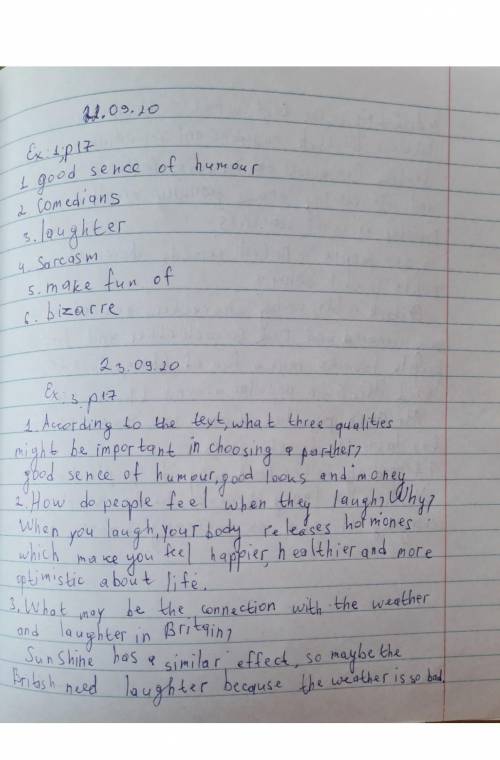 22.09.20
Ex. 1; p17
1. good sence of humour
2. Comedians
3. laughter
4. Sarcasm
5. make fun of
6. bizarre
23.09.20
Ex: 3. p17
1. According to the text, what three qualities
might be important in choosing a parther?
good sence of humour, good looks and money
2. How do people feel when they laugh? Why?
When you laugh, your body releases hormones
which make you feel happier, healthier and more
optimistic about life.
3. What may be the connection with the weather
and laughter in Britain?
Sunshine has a similar effect, so maybe the
Britosh need laughter because the weather is so bad.